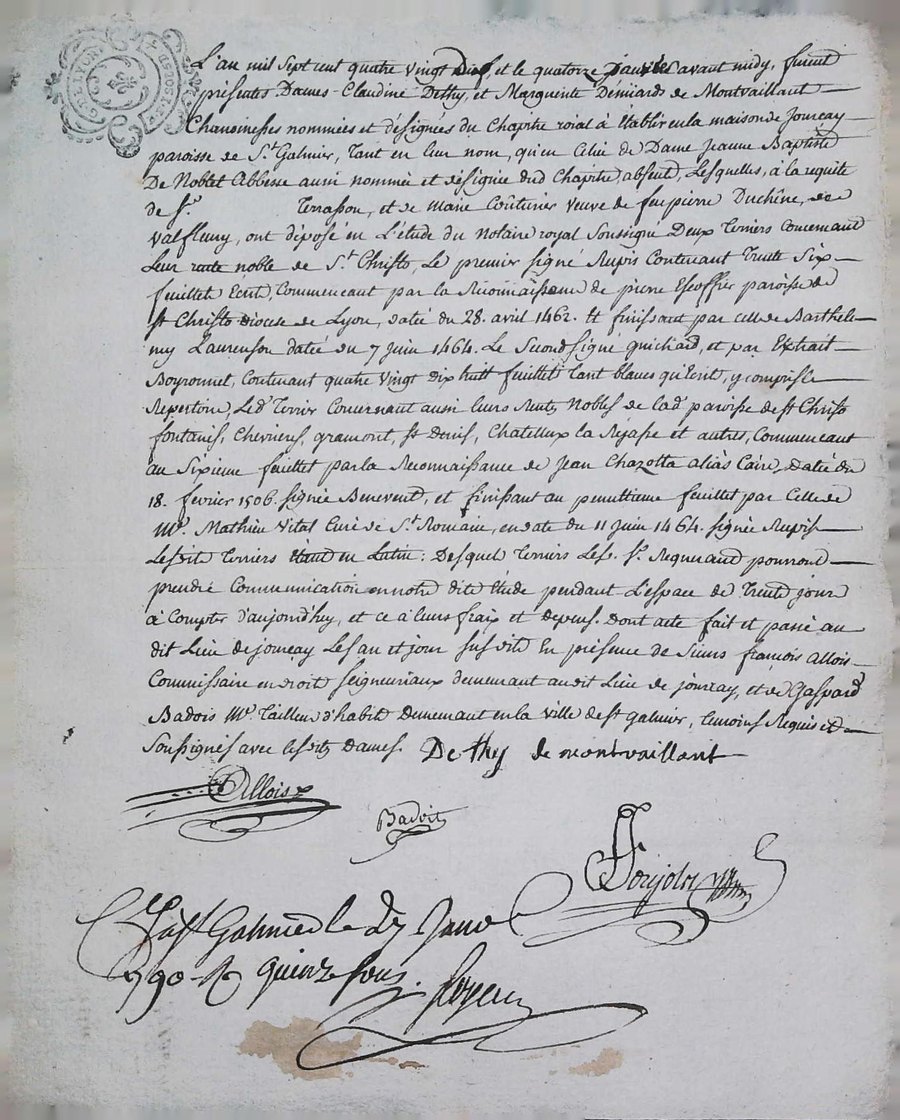 L'an mil Sept cent quatre vingt Dix, et le quatorze Janvier avant midy, furent
présentes Dames Claudine Dethy, et Marguerite Demiard de Montvaillant
Chanoinesses nommées et désignées du Chapitre roial à Etablir en la maison de Jourcay
paroisse de St. Galmier, tant en leur nom, qu'en Celui de Dame Jeanne Baptiste
De Noblet Abbesse aussi nommée et désignée dud Chapitre, absent, Lesquelles, à la requite
de Sr. Terrasson, et de Marie Coûturier veuve de feu pierre Duchêne, de
Valfleury, ont déposé en L'étude du Notaire royal Soussigné Deux Terriers Concernant
Leur rente noble de St. Christo, Le premier signé Rupis Contenant Trente Six
feuillets Ecrit, Commencant par la Reconnaissance de pierre Escoffier paroisse de
St Christo diocese de Lyon, datée du 28. avril 1462. Et finissant par celle de Barthele-
my Laurenson datée du 7 juin 1464. Le Second signé guichard, et par Extrait
Boyronnet, Contenant quatre vingt dix huit feuillets tant blancs qu'Ecrit, y compris le
Repertoire, Led. Terrier Concernant aussi leurs Rentes Nobles de lad. paroisse de St Christo
fontanes, Chevrieres, gramont, St denis, Chatellux la Rejasse et autres, Commencant
au Sixieme feuillet par la Reconnaissance de Jean Chazotta aliàs Caire, datée du
18. fevrier 1506. Signée Benevent, et finissant au penultieme feuillet par Celle de
Mre. Mathieu Vital Curé de St. Romain, en date du 11 juin 1464. signée Rupis
Lesdits Terriers étant en Latin: Desquels Terriers Lesd. Srs. Requerand pourront
prendre Communication en notre dite Etude pendant L'espace de Trente jours
à Compter d'aujourd'huy, et ce à leurs fraix et depens. dont acte fait et passé au
dit Lieu de jourcay Les an et jour susdits En présence de Sieurs françois Allois
Commissaire en droits seigneuriaux demeurant au dit Lieu de jourcay, et de Gaspard
Badois Me. Tailleur d'habits demeurant en la ville de St galmier, temoins Requis et
Soussignés avec lesdites dames. De thy de montvaillant
Allois
Badoit
à St Galmier le 27 Janv
1790 R quinze sous.